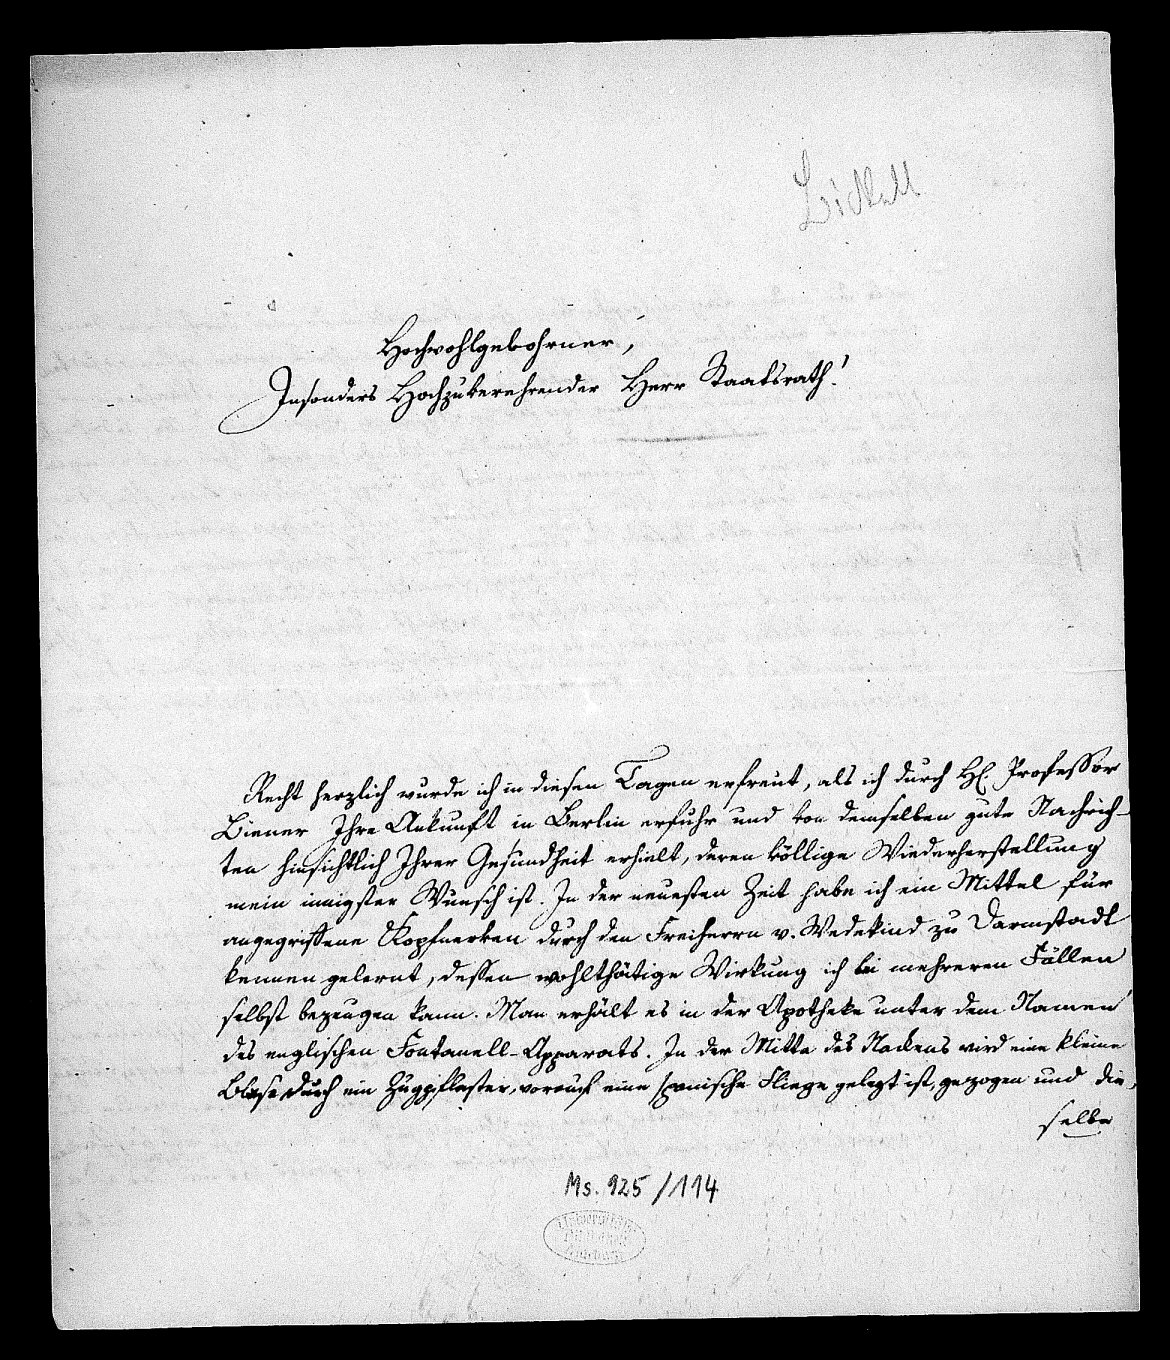 Hochwohlgebohrner,
Insonders Hochzuverehrender Herr Staatsrath!
Recht herzlich wurde ich in diesen Tagen erfreut, als ich durch H. Professor
Biener Ihre Ankunft in Berlin erfuhr und von demselben gute Nachrich-
ten hinsichtlich Ihrer Gesundheit erhielt, deren völlige Wiederherstellung
mein innigster Wunsch ist. In der neuesten Zeit habe ich ein Mittel für
angegriffene Kopfnerven durch den Freiherrn v. Wedekind zu Darmstadt
kennen gelernt, dessen wohlthätige Wirkung ich bei mehreren Fällen
selbst bezeugen kann. Man erhält es in der Apotheke unter dem Namen
des englischen Fontanell-Apparats. In der Mitte des Nackens wird eine kleine
Blase durch ein Zugpflaster, worauf eine spanische Fliege gelegt ist, gezogen und die-
selbe
Ms. 925/114